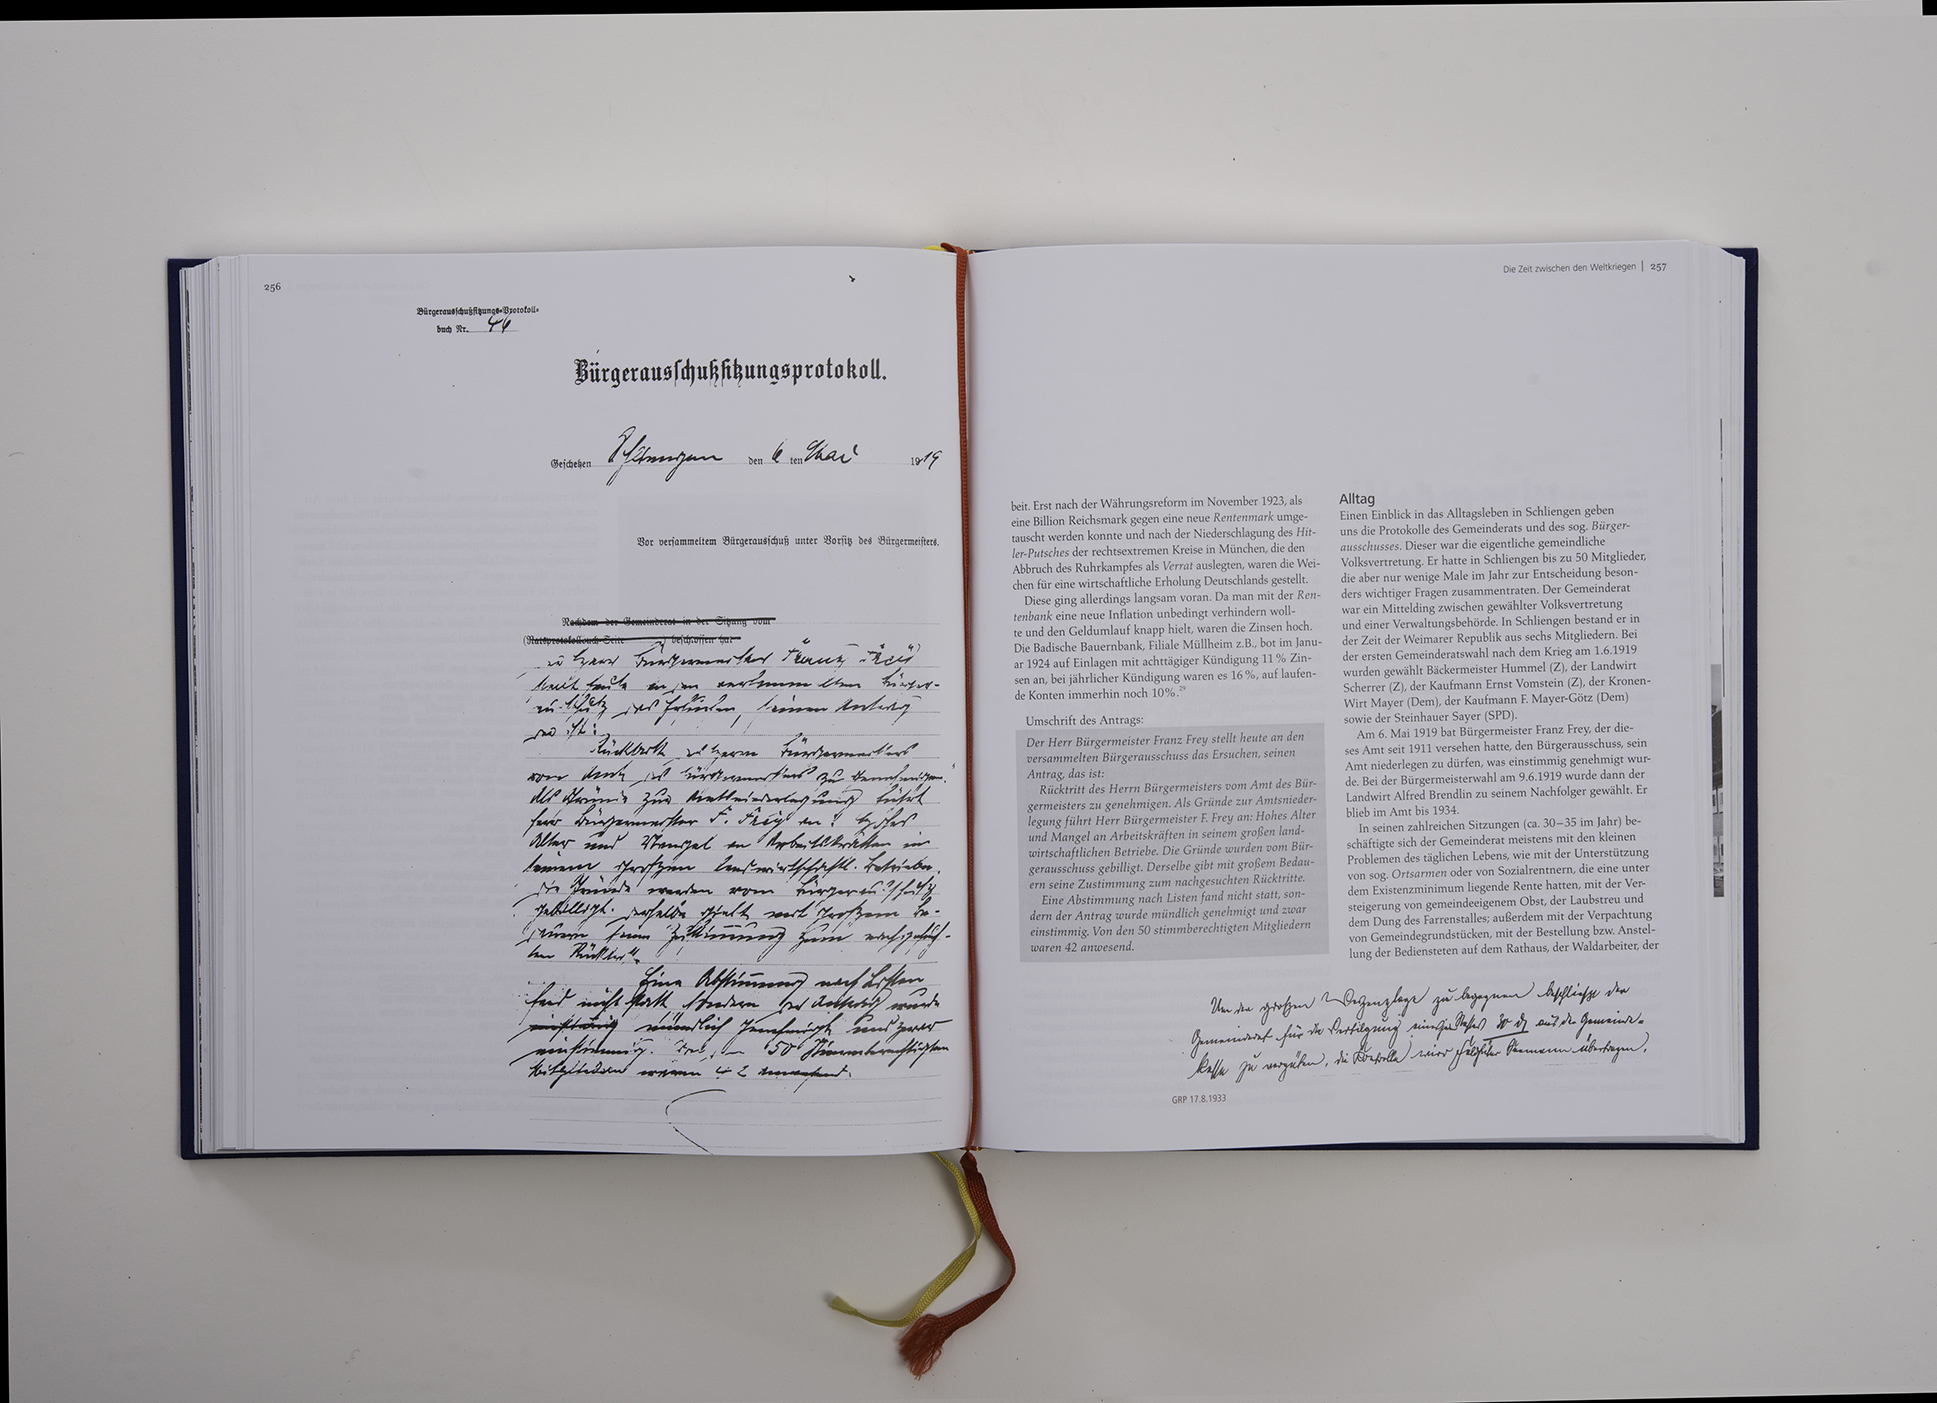 256
Bürgerausschußsitzungs-Protokoll-
buch Nr. 46
Bürgerausschußsitzungsprotokoll.
Geschehen Schliengen den 6 ten Mai 1919
Vor versammeltem Bürgerausschuß unter Vorsitz des Bürgermeisters.
Nachdem der Gemeinderat in der Sitzung vom
(Ratsprotokollbuch-Seite ) beschlossen hat
Herr Bürgermeister Franz Frey
stellt heute an den versammelten Bürger-
ausschuß das Ersuchen, seinen Antrag
das ist:
Rücktritt des Herrn Bürgermeisters
vom Amt des Bürgermeisters zu genehmigen."
Als Gründe zur Amtsniederlegung führt
Herr Bürgermeister F. Frey an: Hohes
Alter und Mangel an Arbeitskräften in
seinem großen landwirtschaftl. Betriebe.
Die Gründe werden vom Bürgerausschuß
gebilligt. Derselbe gibt mit großem Be-
dauern seine Zustimmung zum nachgesuch-
ten Rücktritt".
Eine Abstimmung nach Listen
fand nicht statt sondern der Antrag wurde
mündlich genehmigt und zwar
einstimmig. Von 50 Stimmberechtigten
Mitgliedern waren 42 anwesend.
Die Zeit zwischen den Weltkriegen | 257
beit. Erst nach der Währungsreform im November 1923, als
eine Billion Reichsmark gegen eine neue Rentenmark umge-
tauscht werden konnte und nach der Niederschlagung des Hit-
ler-Putsches der rechtsextremen Kreise in München, die den
Abbruch des Ruhrkampfes als Verrat auslegten, waren die Wei-
chen für eine wirtschaftliche Erholung Deutschlands gestellt.
Diese ging allerdings langsam voran. Da man mit der Ren-
tenbank eine neue Inflation unbedingt verhindern woll-
te und den Geldumlauf knapp hielt, waren die Zinsen hoch.
Die Badische Bauernbank, Filiale Müllheim z.B., bot im Janu-
ar 1924 auf Einlagen mit achttägiger Kündigung 11 % Zin-
sen an, bei jährlicher Kündigung waren es 16 %, auf laufen-
de Konten immerhin noch 10%.²⁹
Umschrift des Antrags:
Der Herr Bürgermeister Franz Frey stellt heute an den
versammelten Bürgerausschuss das Ersuchen, seinen
Antrag, das ist:
Rücktritt des Herrn Bürgermeisters vom Amt des Bür-
germeisters zu genehmigen. Als Gründe zur Amtsnieder-
legung führt Herr Bürgermeister F. Frey an: Hohes Alter
und Mangel an Arbeitskräften in seinem großen land-
wirtschaftlichen Betriebe. Die Gründe wurden vom Bür-
gerausschuss gebilligt. Derselbe gibt mit großem Bedau-
ern seine Zustimmung zum nachgesuchten Rücktritte.
Eine Abstimmung nach Listen fand nicht statt, son-
dern der Antrag wurde mündlich genehmigt und zwar
einstimmig. Von den 50 stimmberechtigten Mitgliedern
waren 42 anwesend.
Alltag
Einen Einblick in das Alltagsleben in Schliengen geben
uns die Protokolle des Gemeinderats und des sog. Bürger-
ausschusses. Dieser war die eigentliche gemeindliche
Volksvertretung. Er hatte in Schliengen bis zu 50 Mitglieder,
die aber nur wenige Male im Jahr zur Entscheidung beson-
ders wichtiger Fragen zusammentraten. Der Gemeinderat
war ein Mittelding zwischen gewählter Volksvertretung
und einer Verwaltungsbehörde. In Schliengen bestand er in
der Zeit der Weimarer Republik aus sechs Mitgliedern. Bei
der ersten Gemeinderatswahl nach dem Krieg am 1.6.1919
wurden gewählt Bäckermeister Hummel (Z), der Landwirt
Scherrer (Z), der Kaufmann Ernst Vomstein (Z), der Kronen-
Wirt Mayer (Dem), der Kaufmann F. Mayer-Götz (Dem)
sowie der Steinhauer Sayer (SPD).
Am 6. Mai 1919 bat Bürgermeister Franz Frey, der die-
ses Amt seit 1911 versehen hatte, den Bürgerausschuss, sein
Amt niederlegen zu dürfen, was einstimmig genehmigt wur-
de. Bei der Bürgermeisterwahl am 9.6.1919 wurde dann der
Landwirt Alfred Brendlin zu seinem Nachfolger gewählt. Er
blieb im Amt bis 1934.
In seinen zahlreichen Sitzungen (ca. 30–35 im Jahr) be-
schäftigte sich der Gemeinderat meistens mit den kleinen
Problemen des täglichen Lebens, wie mit der Unterstützung
von sog. Ortsarmen oder von Sozialrentnern, die eine unter
dem Existenzminimum liegende Rente hatten, mit der Ver-
steigerung von gemeindeeigenem Obst, der Laubstreu und
dem Dung des Farrenstalles; außerdem mit der Verpachtung
von Gemeindegrundstücken, mit der Bestellung bzw. Anstel-
lung der Bediensteten auf dem Rathaus, der Waldarbeiter, der
Um der großen Wespenplage zu begegnen beschließt der
Gemeinderat für die Vertilgung eines Nestes 30 aus der Gemeinde-
kasse zu vergüten, die Kontrolle wird Feldhüter übertragen.
GRP 17.8.1933